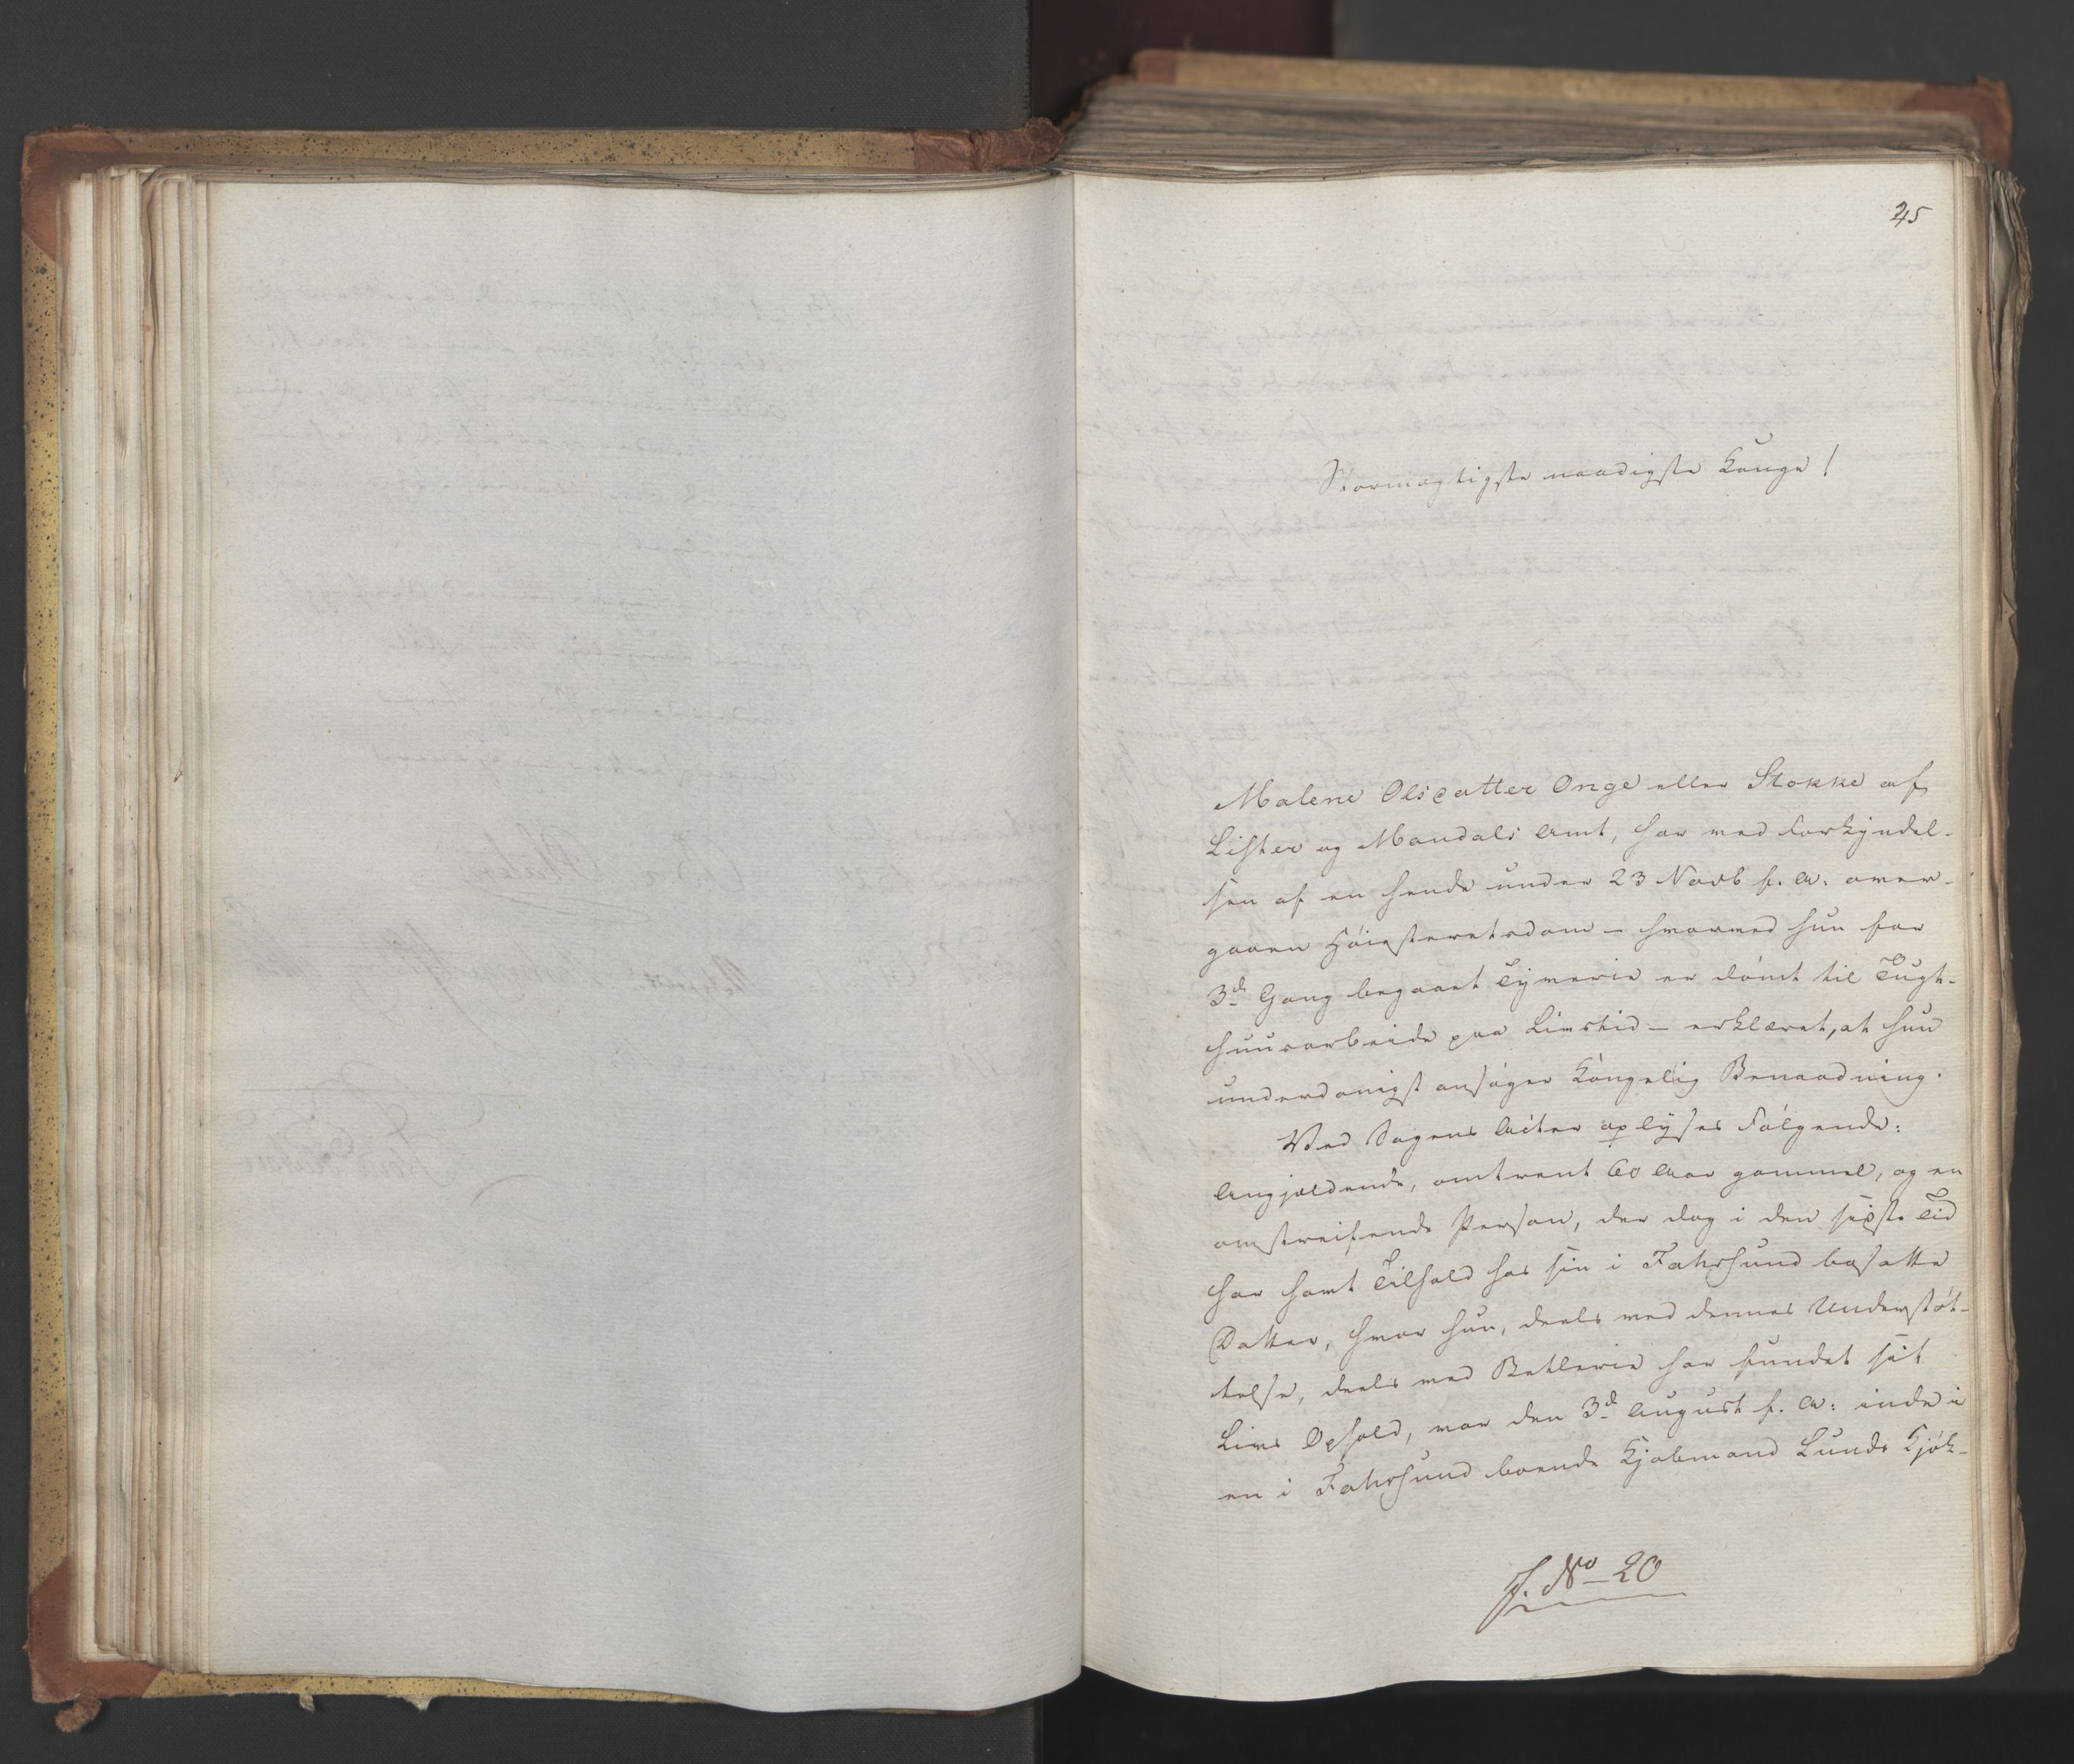 45
Stormægtigste naadigste Konge!
Malene Olsdatter Onge eller Stokke af
Lister og Mandals Amt, har ved Forkyndel-
sen af en hende under 23 Novb f. A. over-
gaaen Høiesteretsdom – hvorved hun for
3d Gang begaaet Tyverie er dømt til Tugt-
huusarbeide paa Livstid – erklæret, at hun
underdanigst ansøger Kongelig Benaadning.
Ved Sagens Acter oplyses Følgende:
Angjældende, omtrent 60 Aar gammel, og en
omstreifende Person, der dog i den sidste Tid
har havt Tilhold hos sin i Fahrsund bosatte
Datter, hvor hun, deels ved dennes Understøt-
telse, deels ved Betlerie har fundet sit
Livs Ophold, var den 3d August f. A. inde i
en i Fahrsund boende Kjøbmand Lunds Kjøk-
J. No 20